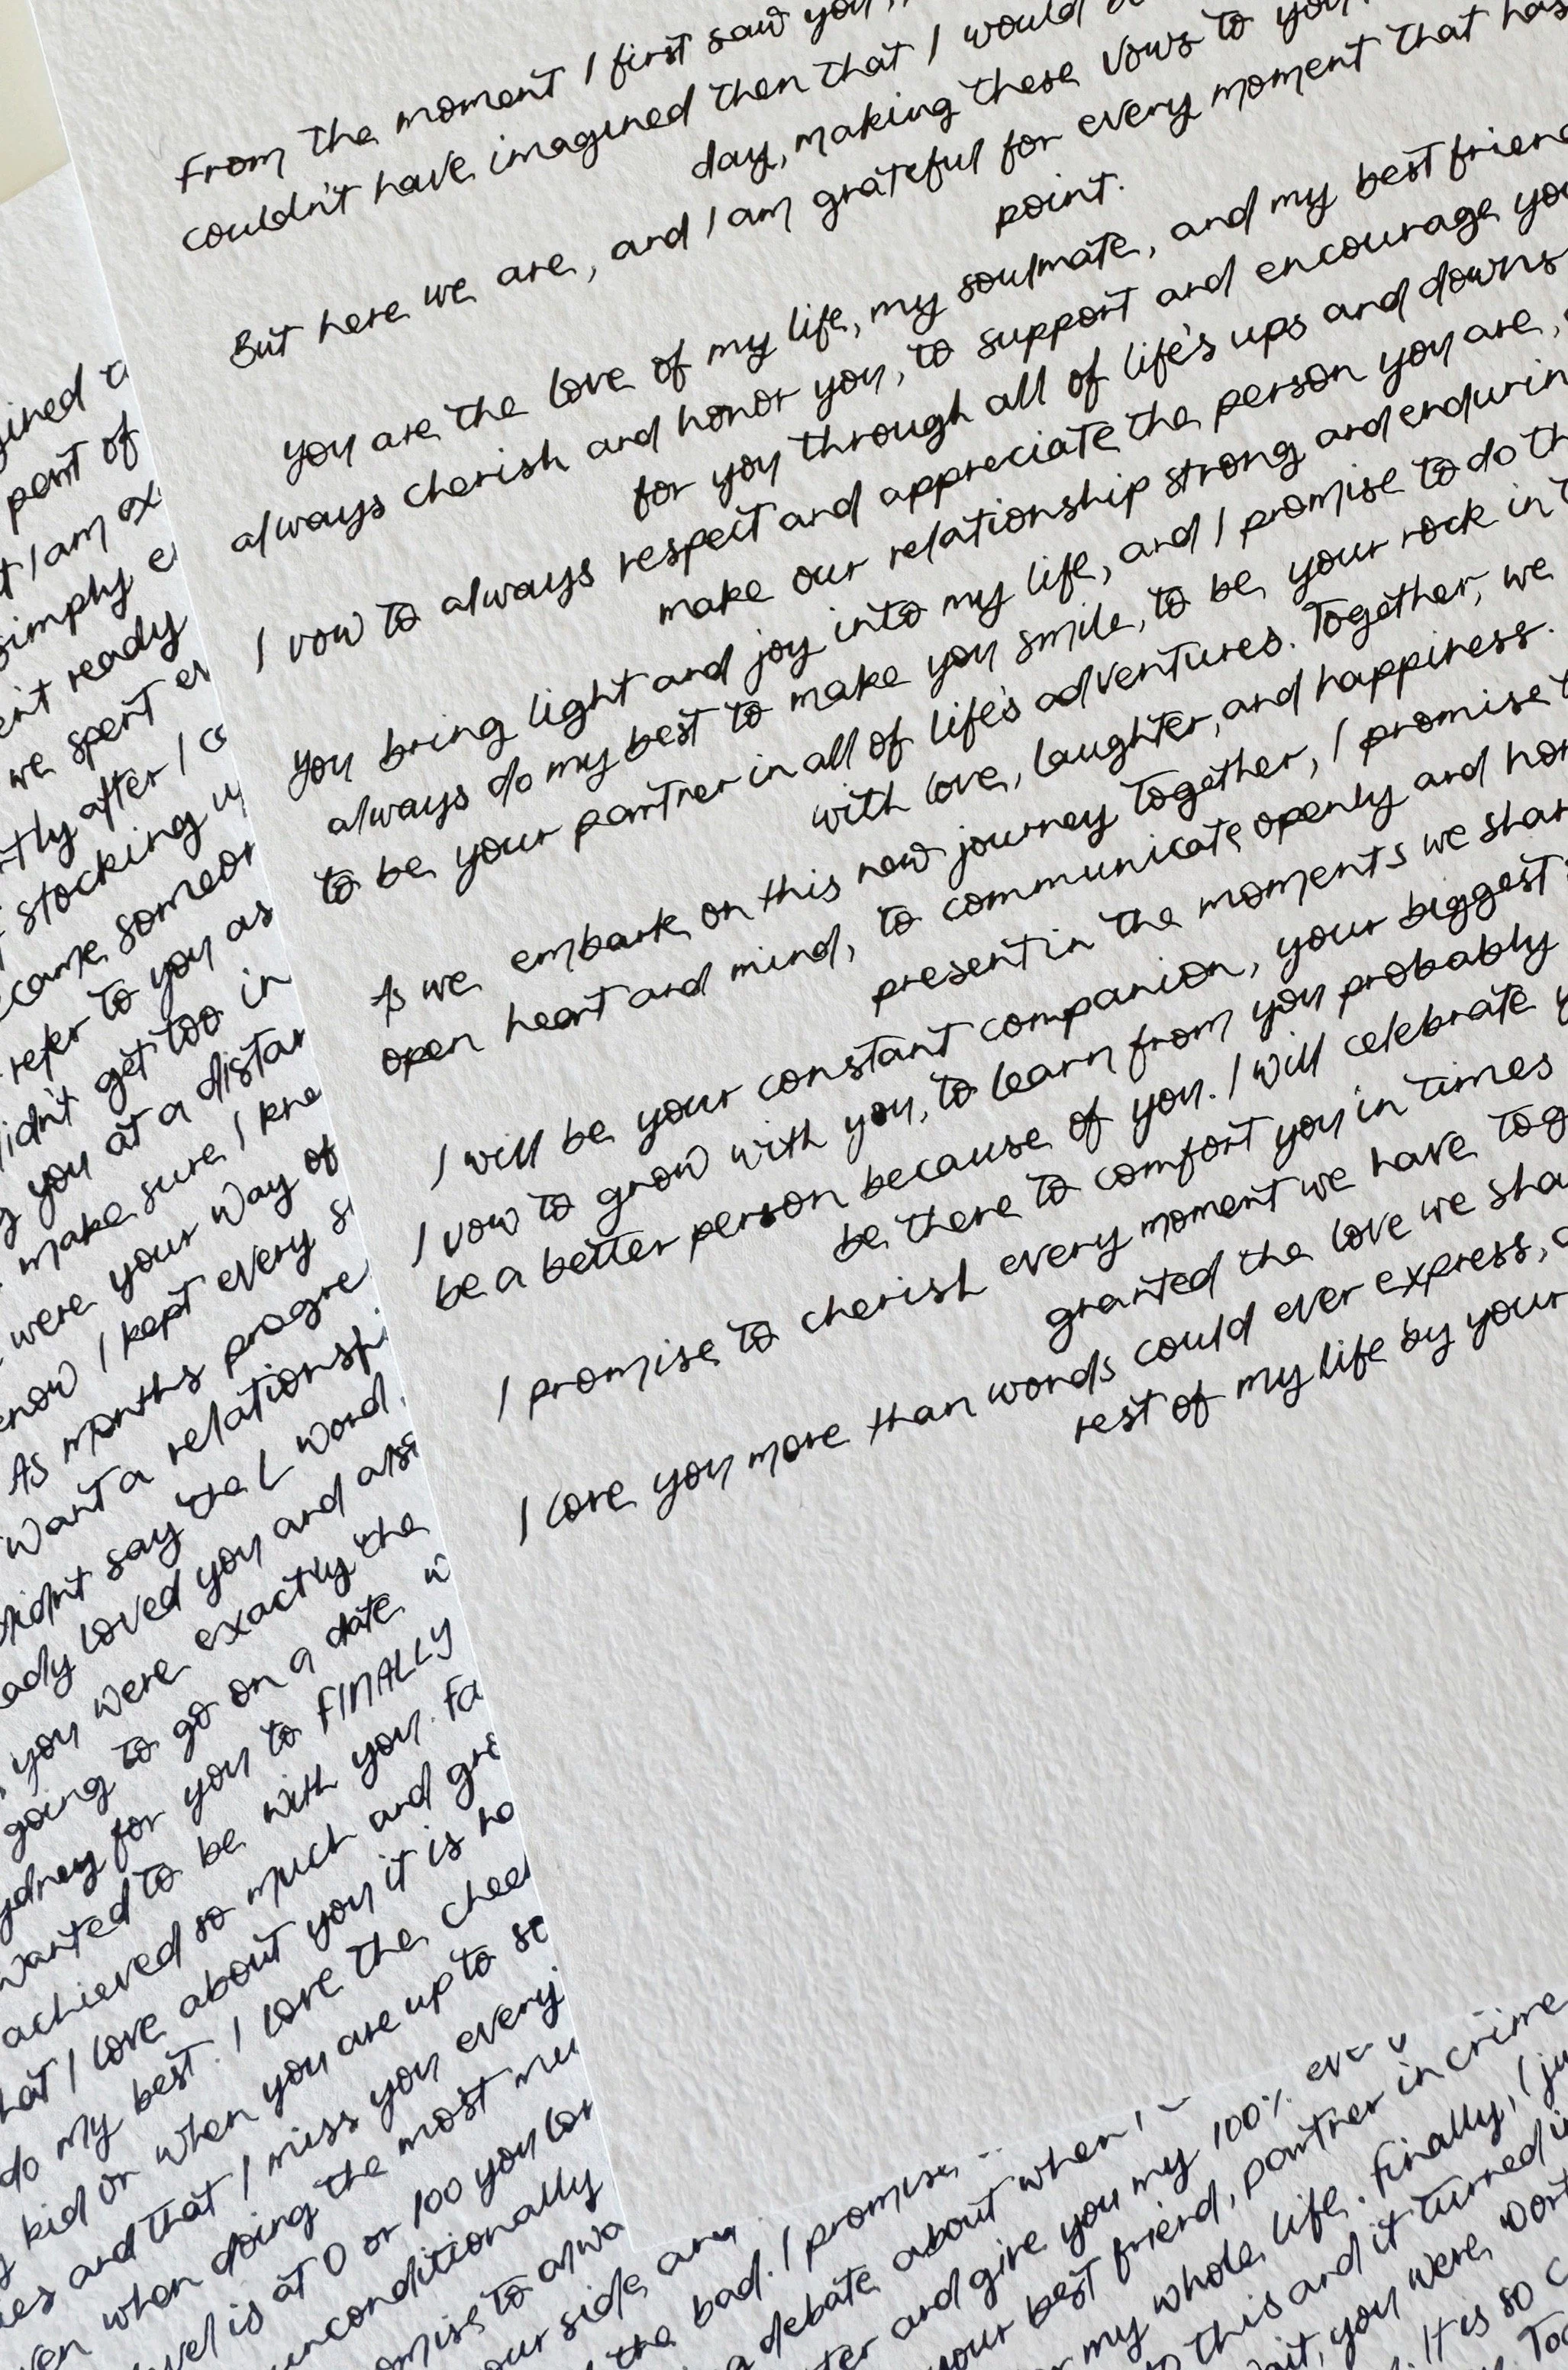 From the moment I first saw you,
couldn't have imagined then that I would
day, making these vows to you
But here we are, and I am grateful for every moment that has
point.
you are the love of my life, my soulmate, and my best friend
always cherish and honor you, to support and encourage you
for you through all of life's ups and downs
I vow to always respect and appreciate the person you are,
make our relationship strong and enduring
you bring light and joy into my life, and I promise to do th
always do my best to make you smile, to be your rock in t
to be your partner in all of life's adventures. Together, we
with love, laughter, and happiness.
As we embark on this new journey together, I promise t
open heart and mind, to communicate openly and hon
present in the moments we shar
I will be your constant companion, your biggest
I vow to grow with you, to learn from you probably
be a better person because of you. I will celebrate y
be there to comfort you in times
I promise to cherish every moment we have tog
granted the love we sha
I love you more than words could ever express, a
rest of my life by your
gined t
part of
t I am ex
simply e
en't ready
we spent er
tly after I co
stocking u
came someon
refer to you as
didn't get too in
g you at a distan
make sure I kne
were your way of
know I kept every s
As months progre
want a relationsh
didn't say the L word.
ady loved you and als
you were exactly the
going to go on a date w
ydney for you to FINALLY
wanted to be with you. Fa
achieved so much and gre
hat I love about you it is ho
do my best. I love the chee
kid or when you are up to so
es and that I miss you every
ven when doing the most mu
vel is at 0 or 100 you lov
unconditionally
omise to alwa
our side and
the bad. I promise
debate about when I
ter and give you my 100% ev
your best friend, partner in crime
my whole life. Finally, I ju
to this and it turned i
ait, you were wort
It is so c
Tog